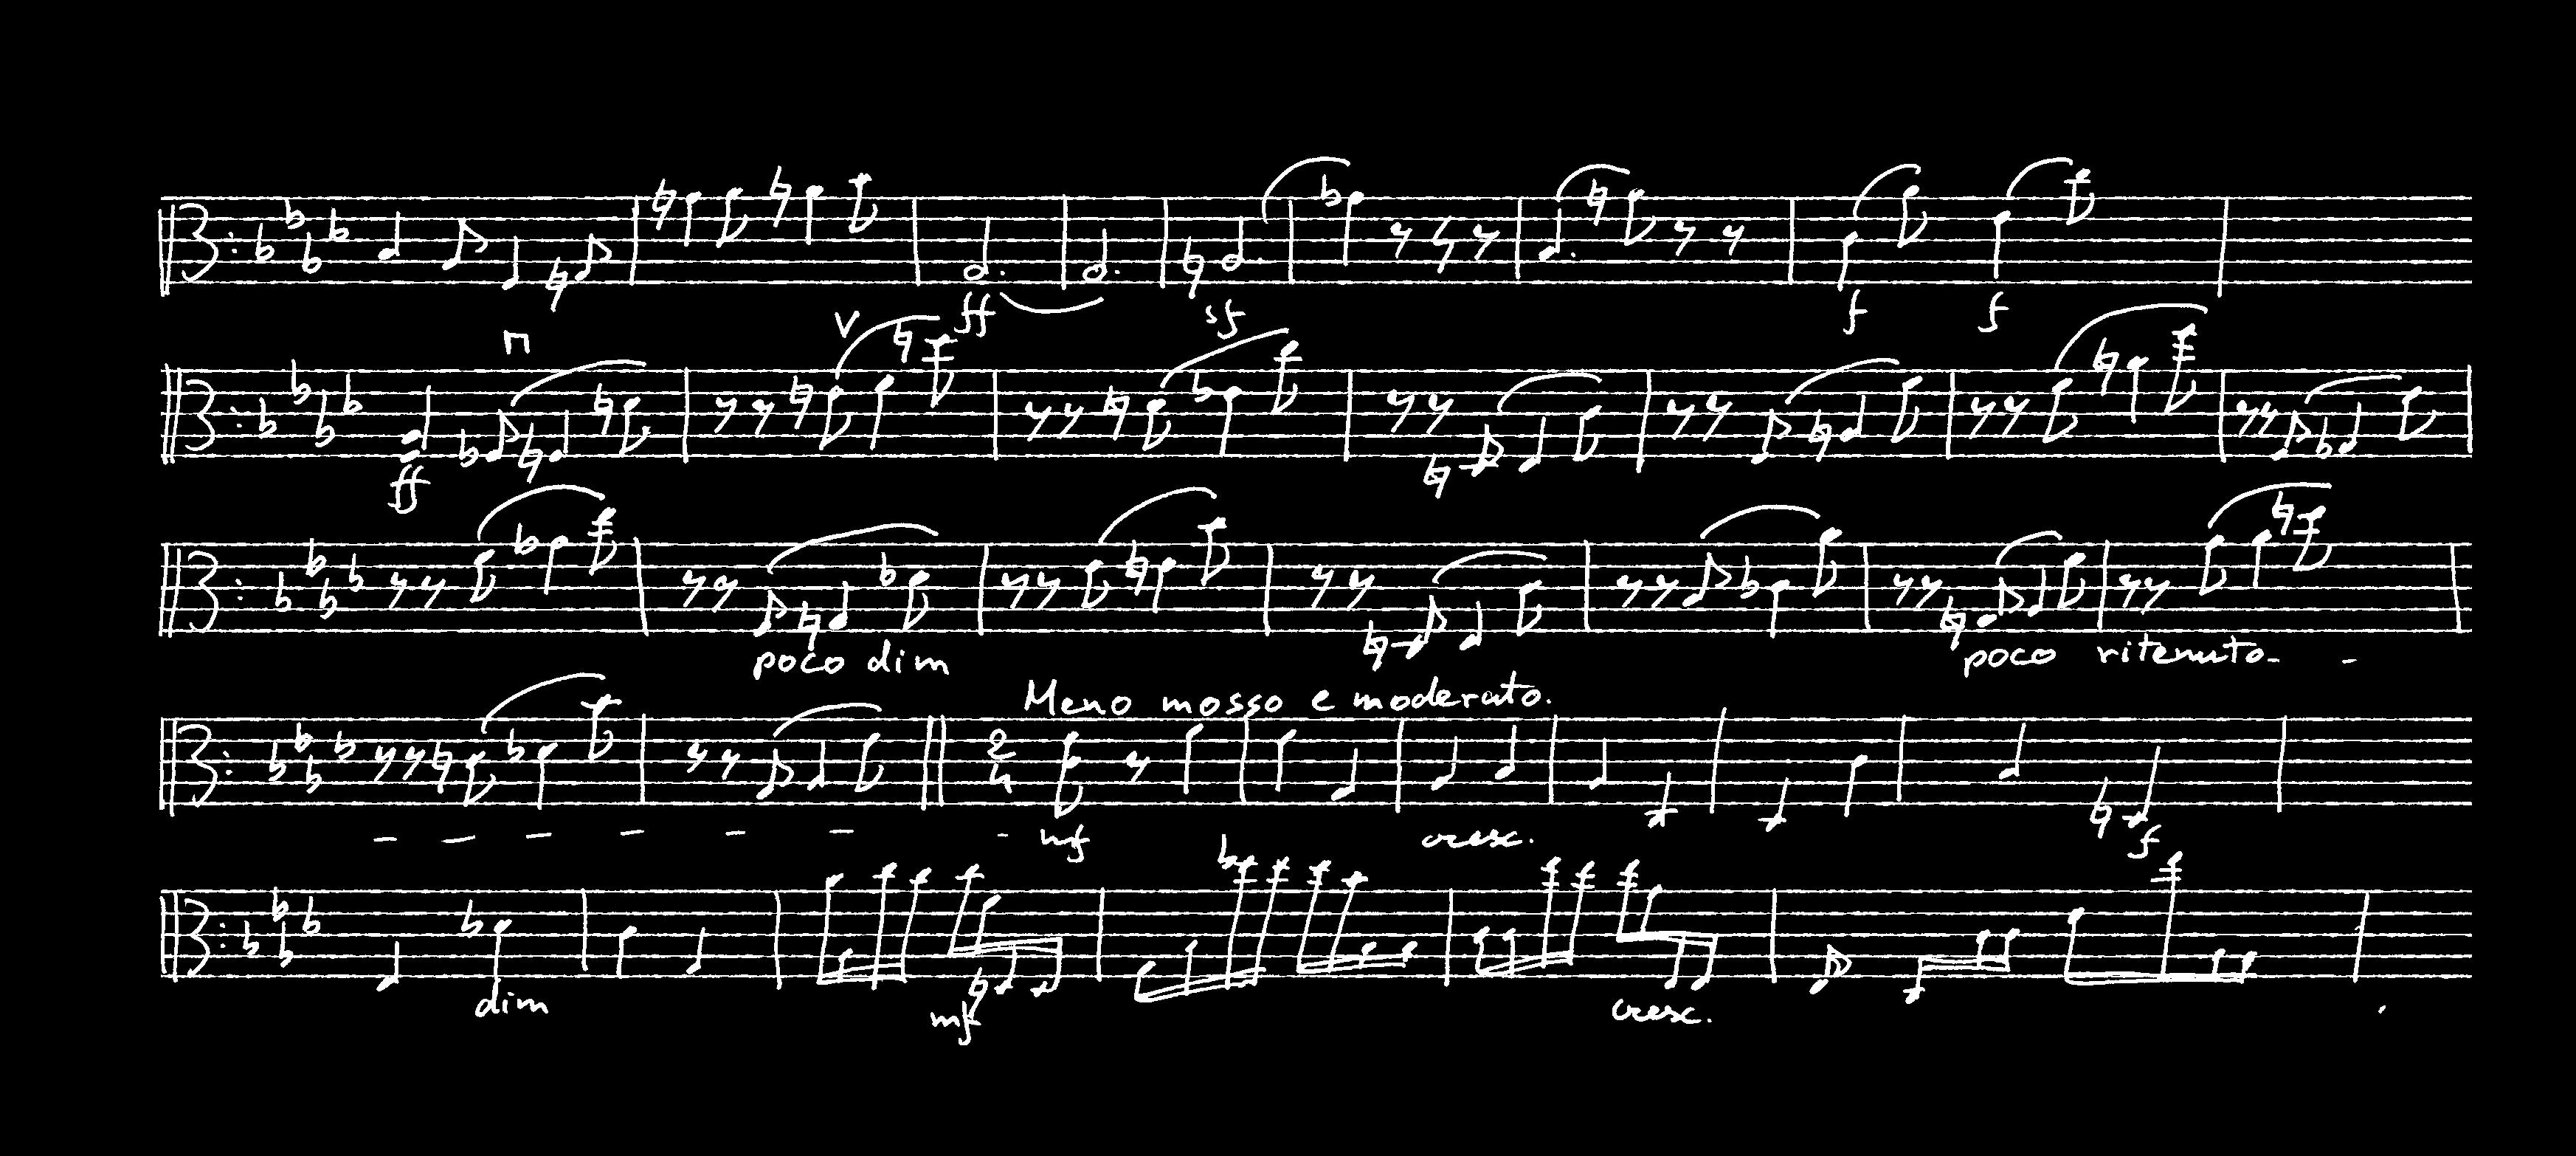 ff sf f f
ff
poco dim poco ritenuto - -
Meno mosso e moderato.
2
4
- - - - - - - mf cresc. f
dim mf cresc.